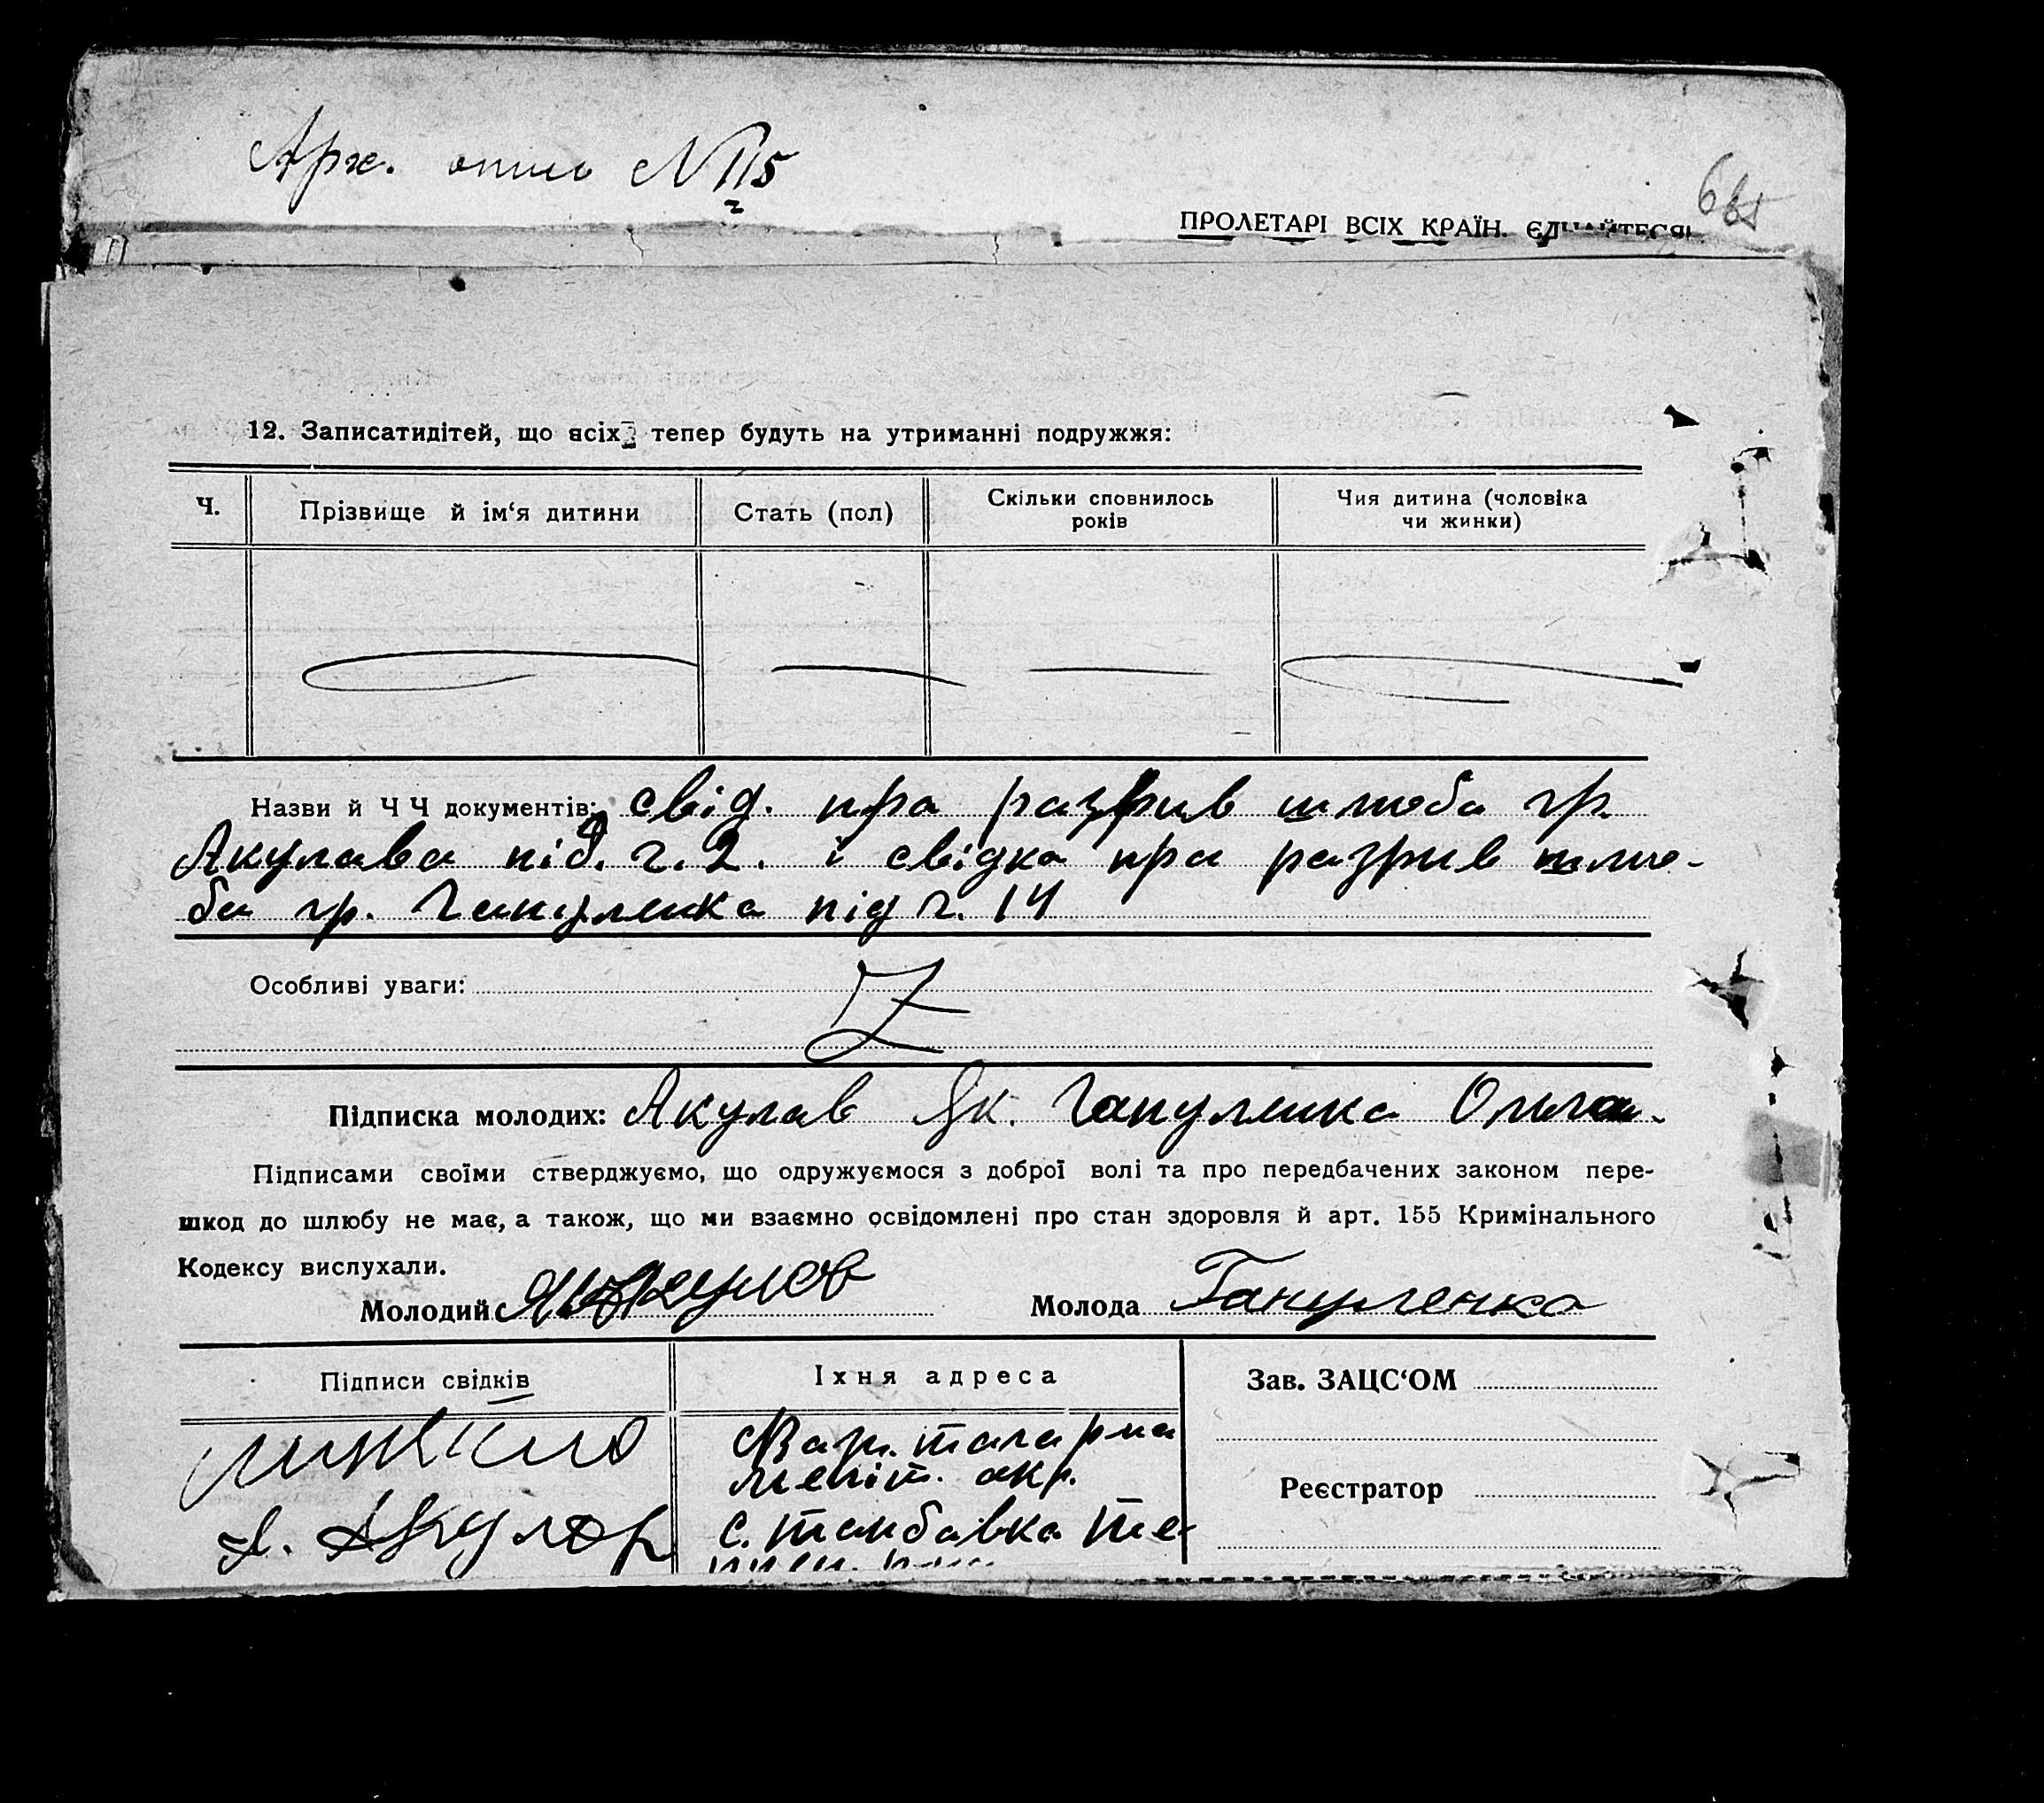 Арх. опись № 115
665
ПРОЛЕТАРІ ВСІХ КРАЇН, ЄДНАЙТЕСЯ!
12. Записатидітей, що всіх тепер будуть на утриманні подружжя:
Ч. Прізвище й ім‘я дитини Стать (пол) Скільки сповнилось років Чия дитина (чоловіка чи жинки)
Назви й Ч Ч документів: свід. про разрив шлюба гр.
Акулава під. ч. 2. і свідка про разрив шлю-
ба гр. Гапуленка під ч. 14
Особливі уваги: Z
Підписка молодих: Акулав Як. Гапуленка Ольга.
Підписами своїми стверджуємо, що одружуємося з доброї волі та про передбачених законом пере-
шкод до шлюбу не має, а також, що ми взаємно освідомлені про стан здоровля й арт. 155 Кримінального
Кодексу вислухали.
Молодий Акулов Молода Гапуленко
Підписи свідків Їхня адреса Зав. ЗАЦС‘ОМ
меліт. окр.
Реєстратор
Акулов с. тамбавка Те-